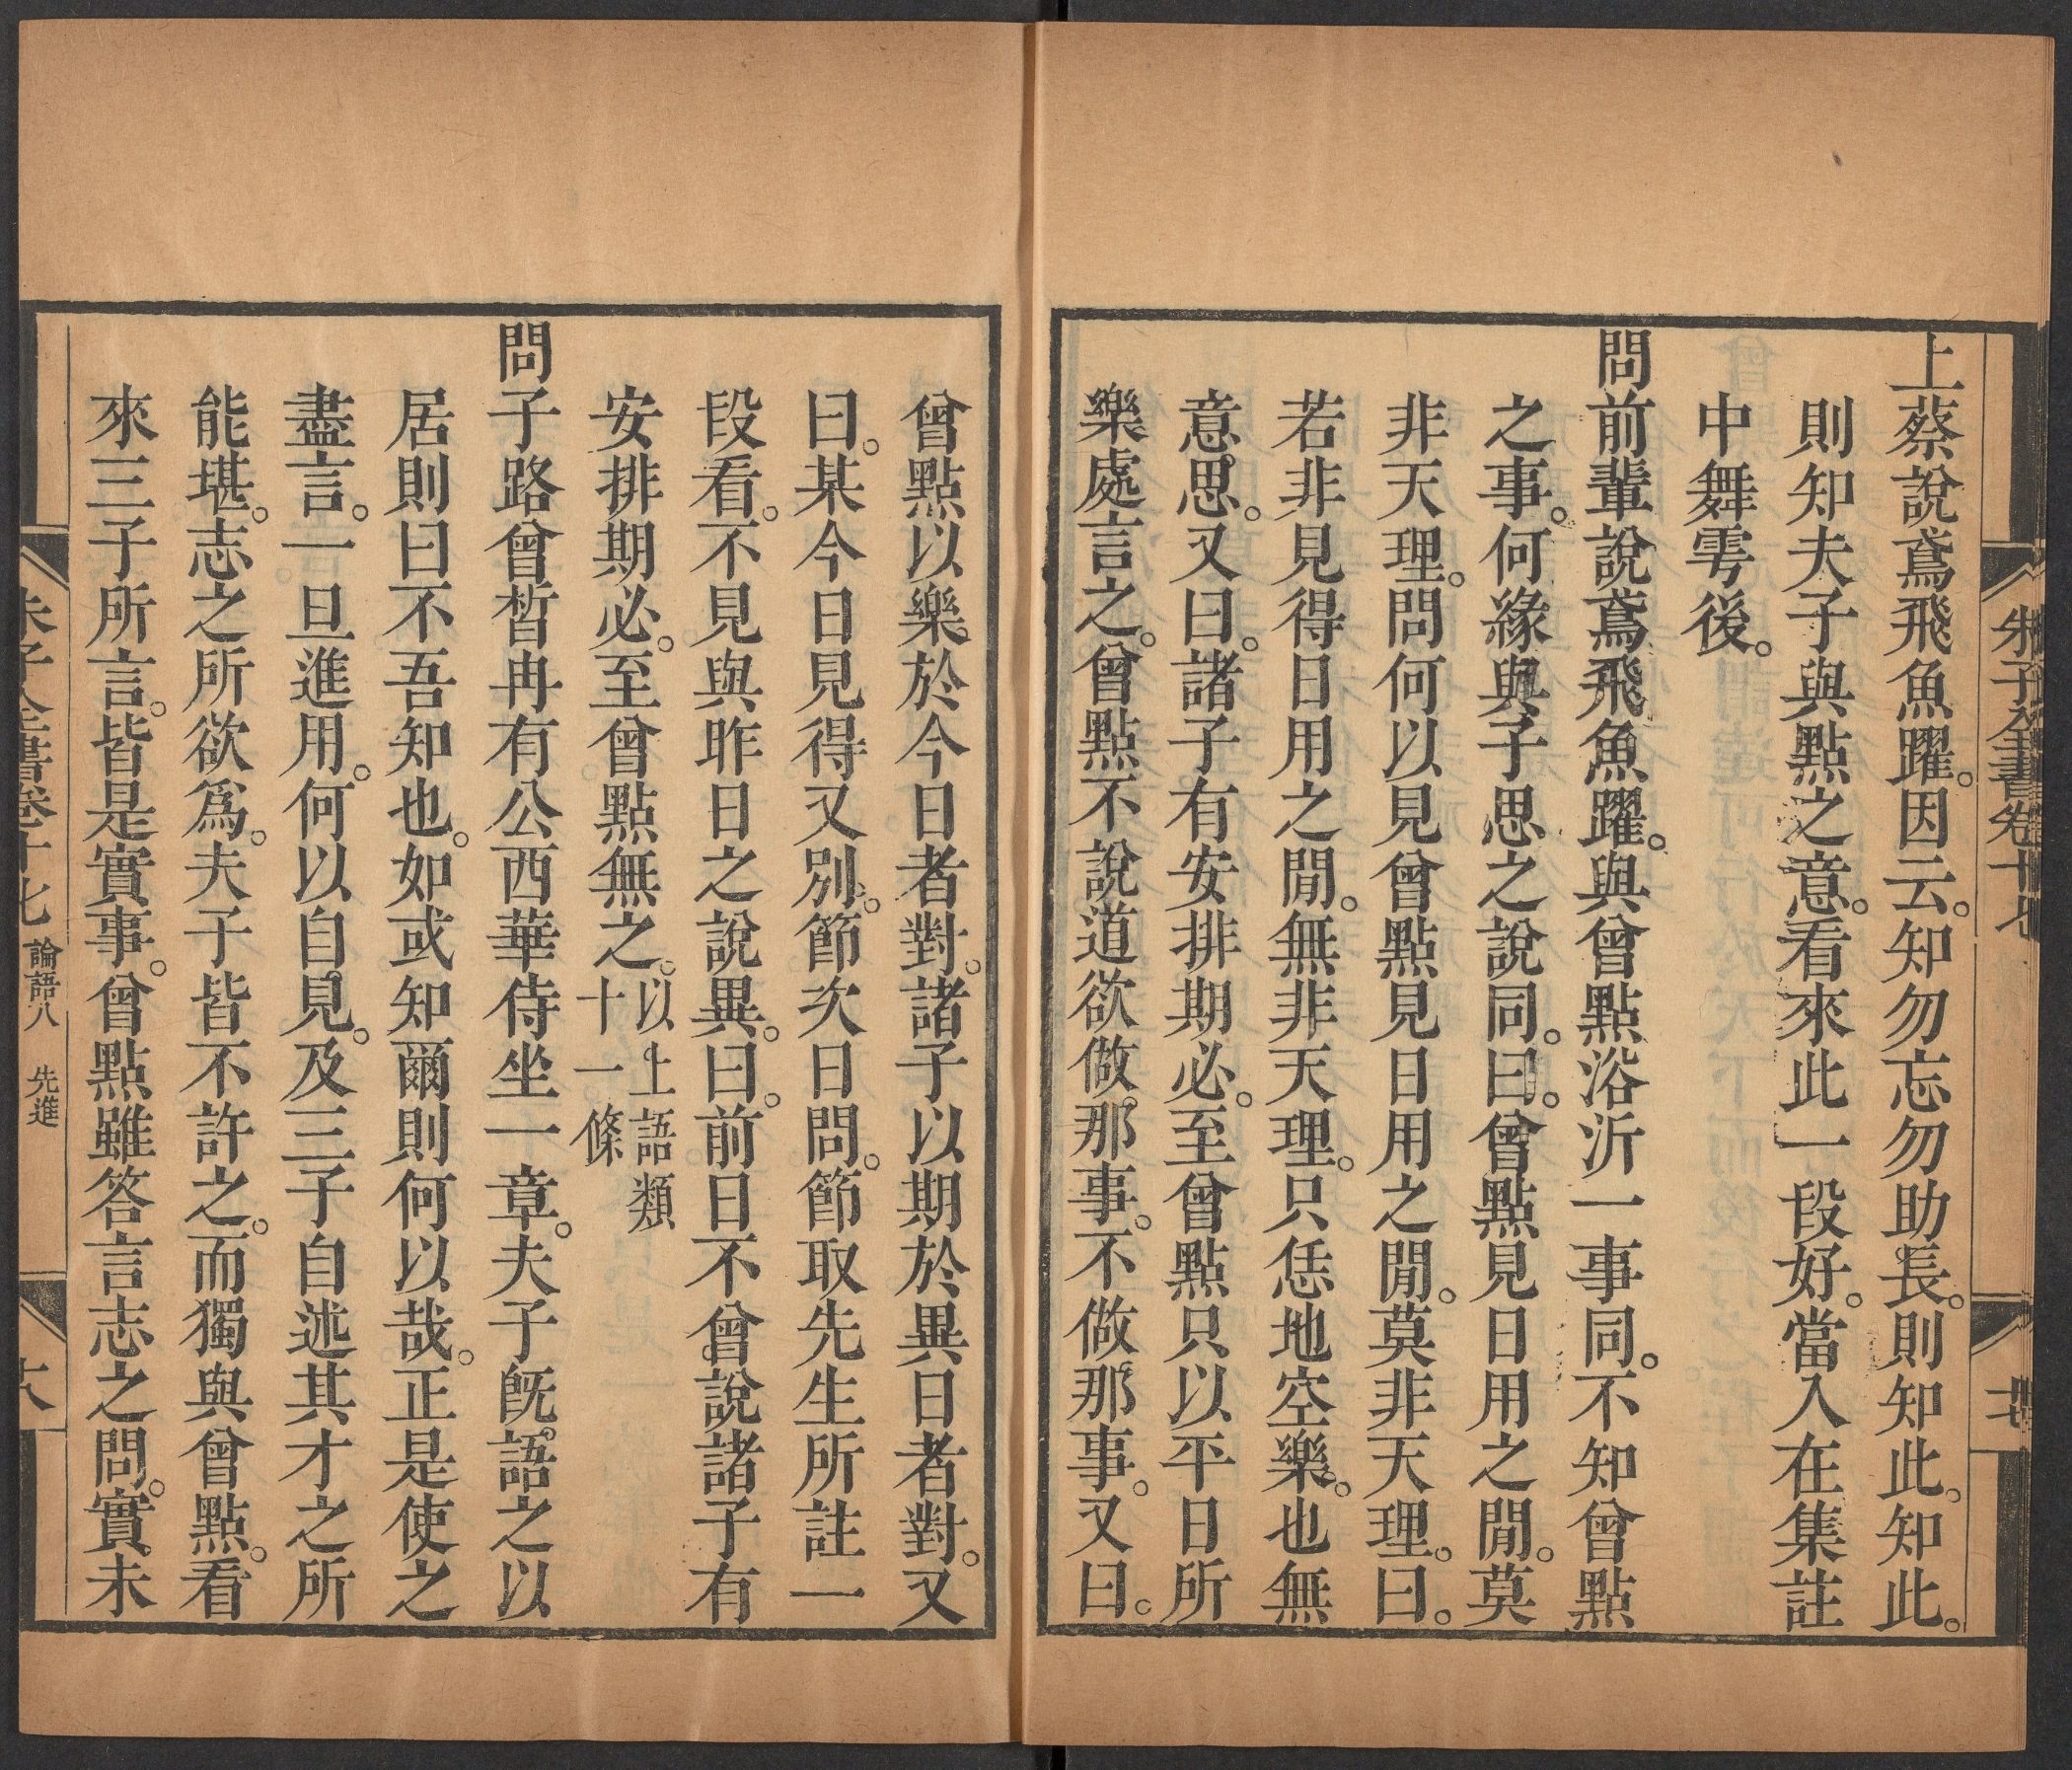 朱子全書卷十七
十七
上蔡說鳶飛魚躍。因云。知勿忘勿助長。則知此。知此。
則知夫子與點之意。看來此一段好。當入在集註
中舞雩後。
問前輩說鳶飛魚躍。與曾點浴沂一事同。不知曾點
之事。何緣與子思之說同。曰。曾點見日用之閒。莫
非天理。問何以見曾點見日用之閒。莫非天理。曰。
若非見得日用之閒。無非天理。只恁地空樂。也無
意思。又曰。諸子有安排期必。至曾點只以平日所
樂處言之。曾點不說道欲做那事。不做那事。又曰。
曾點以樂於今日者對。諸子以期於異日者對。又
曰。某今日見得又別。節次日問。節取先生所註一
段看。不見與昨日之說異。曰。前日不曾說諸子有
安排期必。至曾點無之。以上語類
十一條
問子路曾晳冉有公西華侍坐一章。夫子旣語之以
居則曰不吾知也。如或知爾則何以哉。正是使之
盡言。一旦進用。何以自見。及三子自述其才之所
能堪。志之所欲爲。夫子皆不許之。而獨與曾點。看
來三子所言。皆是實事。曾點雖答言志之問。實未
朱子全書卷十七 論語八 先進
十八